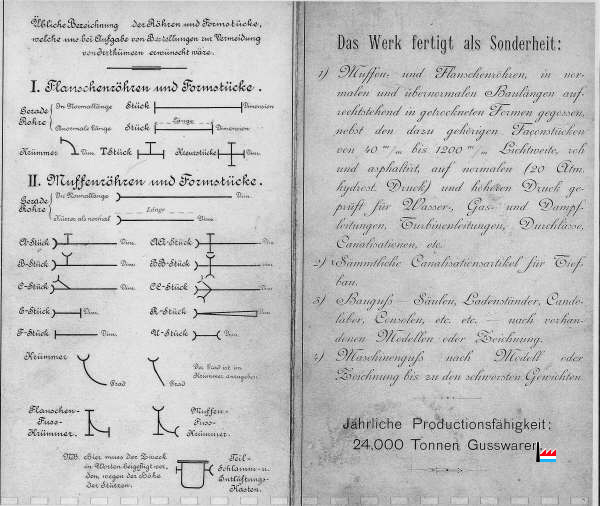 Übliche Bezeichnung der Röhren und Formstücke,
welche uns bei Aufgabe von Bestellungen zur Vermeidung
von Irrthümern erwünscht wäre.
I. Flanschenröhren und Formstücke.
Gerade Rohre
In Normallänge Stück Dimension
Abnormale Länge Stück Länge Dimension
Krümmer Dim. T Stück Dim. Kreuzstücke Dim.
II. Muffenröhren und Formstücke.
Gerade Rohre
In Normallänge Dim.
Kürzer als normal Länge Dim.
A-Stück Dim. AA-Stück Dim.
B-Stück Dim. BB-Stück Dim.
C-Stück Dim. CC-Stück Dim.
E-Stück Dim. R-Stück Dim.
F-Stück Dim. U-Stück Dim.
Krümmer Grad Grad
Der Grad ist im
Krümmer anzugeben.
Flanschen-
Fuss-
Krümmer.
Muffen-
Fuss-
Krümmer.
NB. Hier muss der Zweck
in Worten beigefügt wer-
den, wegen der Höhe
der Stutzen.
Teil-
Schlamm-u.
Entlüftungs-
Kasten.
Das Werk fertigt als Sonderheit:
1) Muffen- und Flanschenröhren, in nor-
malen und übernormalen Baulängen auf-
rechtstehend in getrockneten Formen gegossen,
nebst den dazu gehörigen Façonstücken
von 40 m/m bis 1200 m/m Lichtweite, roh
und asphaltirt, auf normalen (20 Atm.
hydrost. Druck) und höheren Druck ge-
prüft für Wasser-, Gas- und Dampf-
leitungen, Turbinenleitungen, Durchlässe,
Canalisationen, etc.
2) Sämmtliche Canalisationsartikel für Tief-
bau.
3) Bauguß — Säulen, Ladenständer, Cande-
laber, Consolen, etc. etc. — nach vorhan-
denen Modellen oder Zeichnung.
4) Maschinenguß nach Modell oder
Zeichnung bis zu den schwersten Gewichten.
Jährliche Productionsfähigkeit:
24,000 Tonnen Gusswaren.